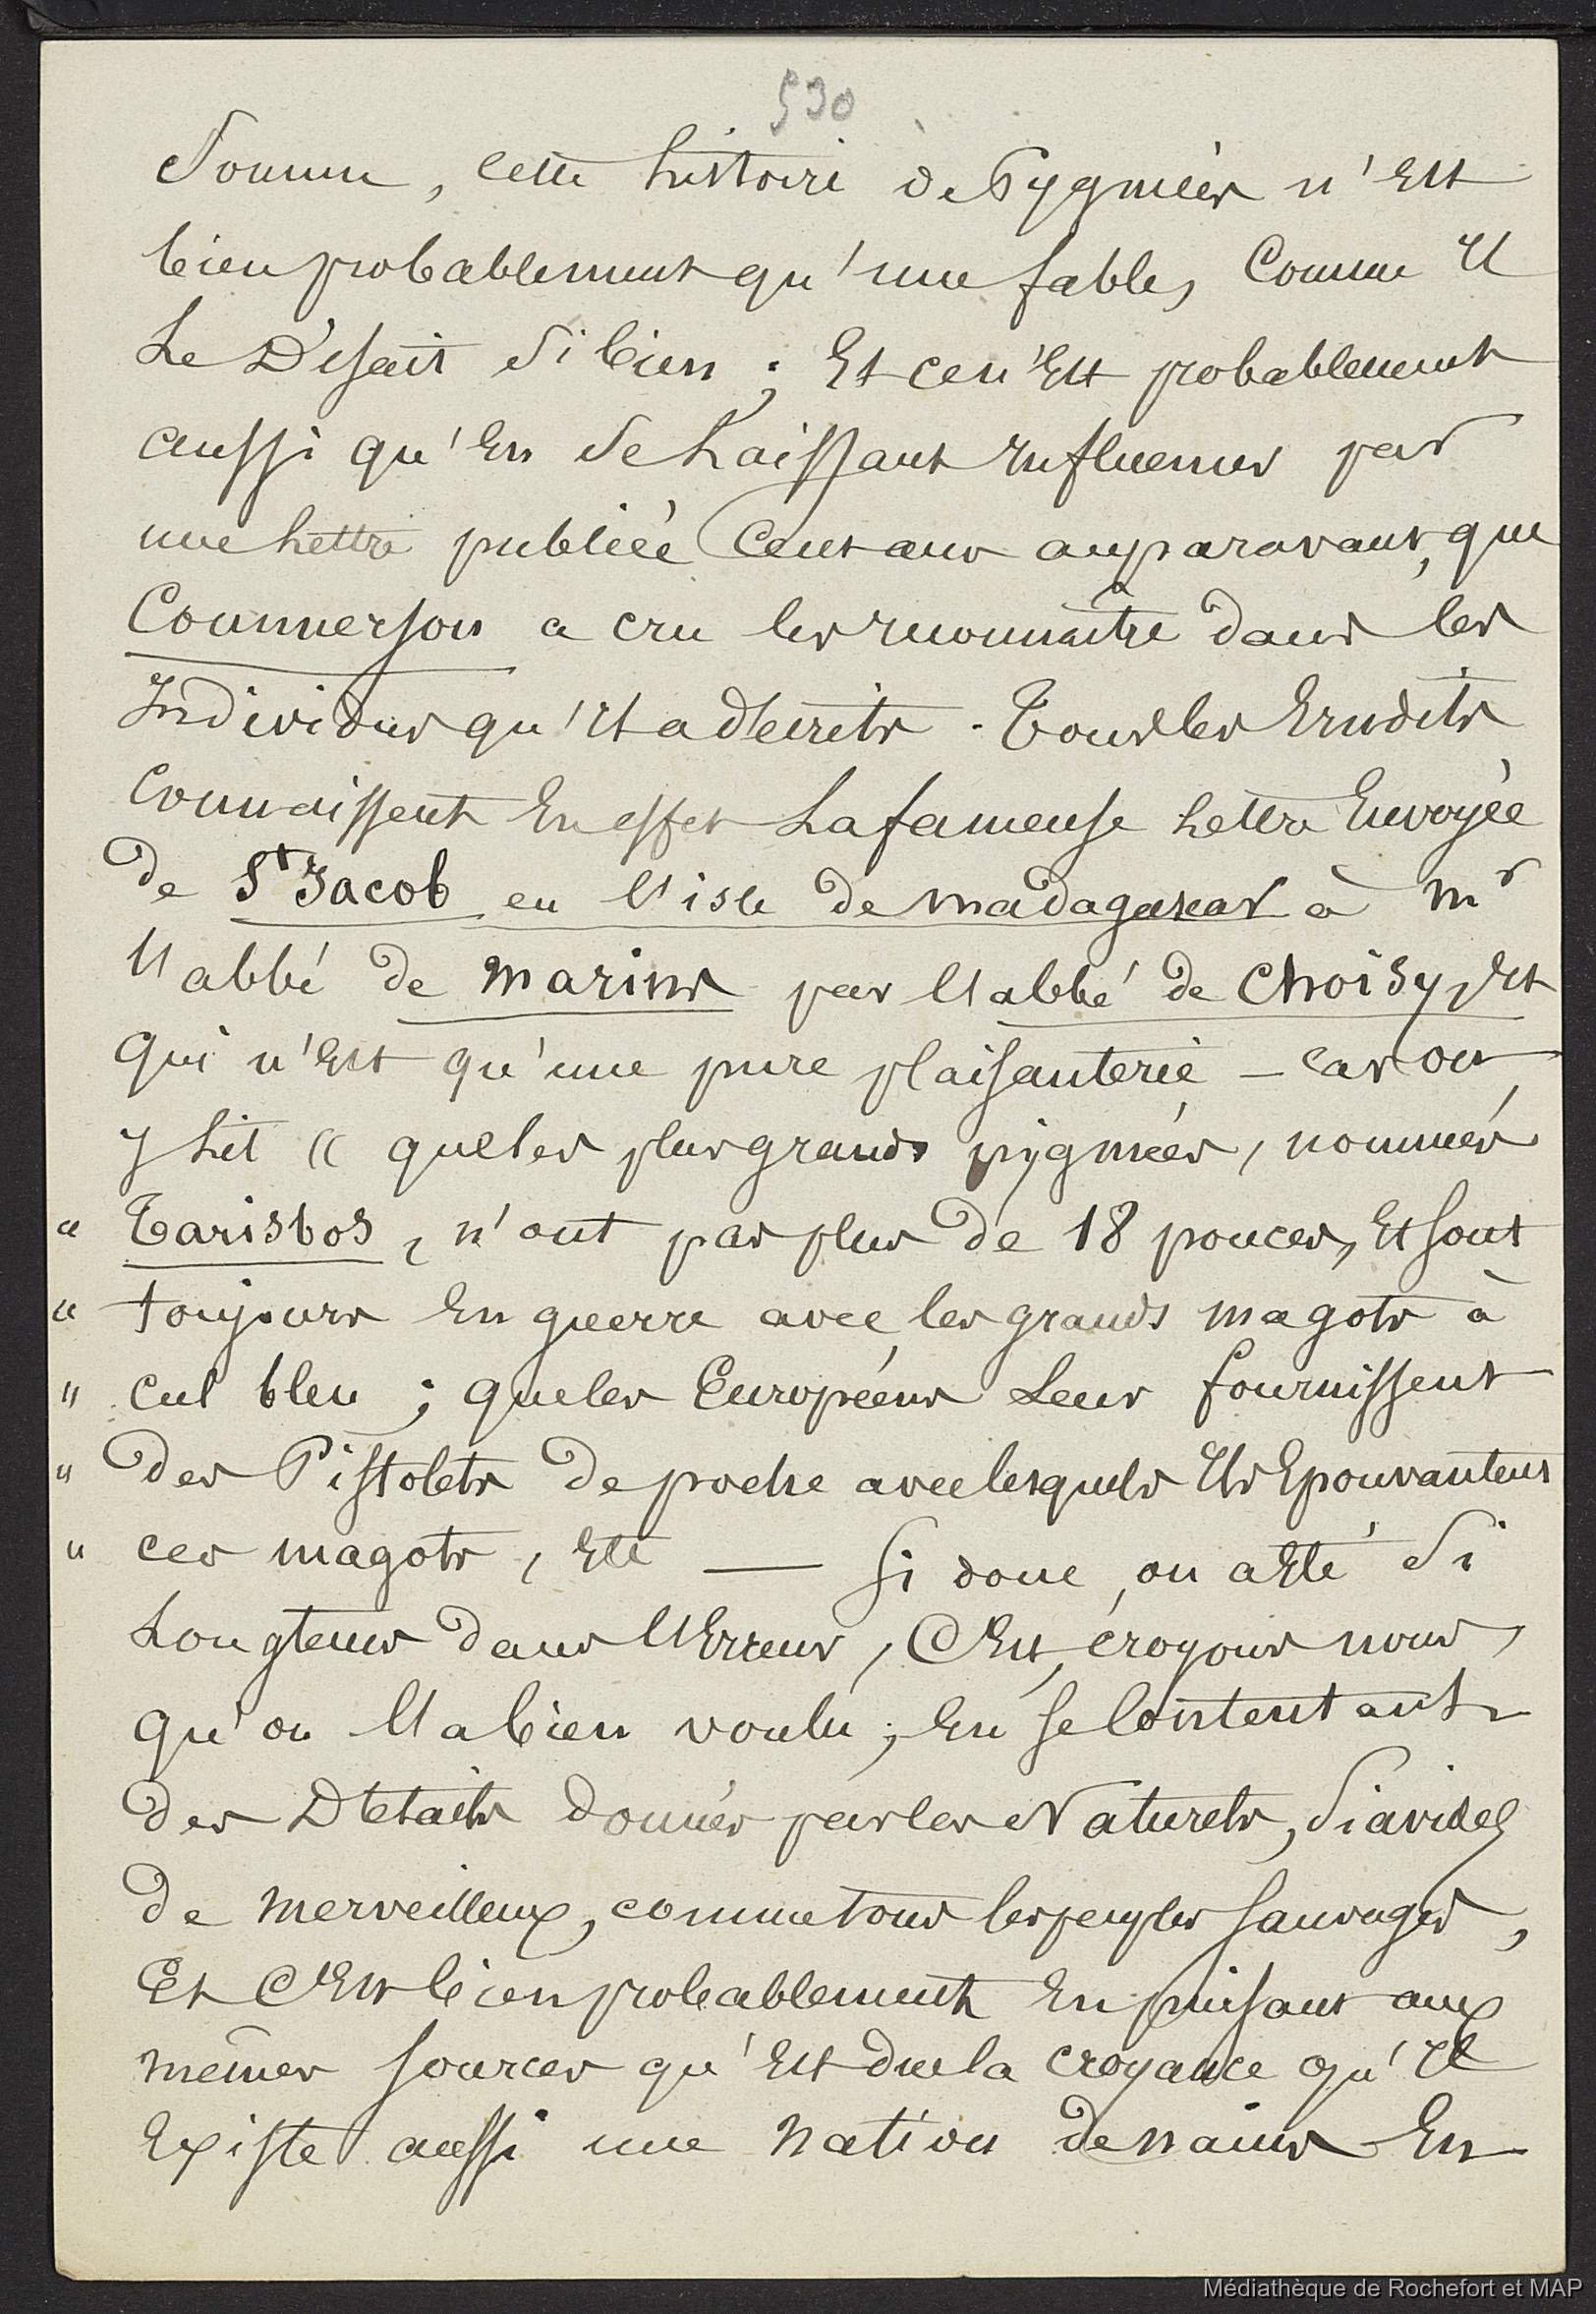 530
Somme, cette histoire de Pygmées n'Est
bien probablement qu'une fable, Comme Il
Le Disait Si bien ; Et ce n'Est probablement
aussi qu'En Se Laissant Influencer par
une Lettre publiée Cent ans auparavant, que
Commerson a cru les reconnaître dans les
Individus qu'Il a décrits. Tous les Erudits
Connaissent En effet La fameuse Lettre Envoyée
de St Jacob en l'isle de madagascar à Mr
l'abbé de Marins par l'abbé de Choisy, Et
Qui n'Est qu'une pure plaisanterie – car on
y Lit « que les plus grands pygmées, nommés
" Tarisbos, n'ont pas plus de 18 pouces, Et sont
" toujours En guerre avec les grands magots à
" cul bleu ; que les Européens Leur fournissent
" des Pistolets de poche avec lesquels Ils Epouvantent
" ces magots, Etc — Si donc, on a Eté Si
Longtems dans l'Erreur, C'Est, croyons nous,
qu'on l'a bien voulu ; En se Contentant
des Détails donnés par les Naturels, Si avides
de Merveilleux, comme tous les peuples Sauvages,
Et C'Est bien probablement En puisant aux
mêmes sources qu'Est due la croyance qu'Il
Existe aussi une Nation de nains En
Médiathèque de Rochefort et MAP